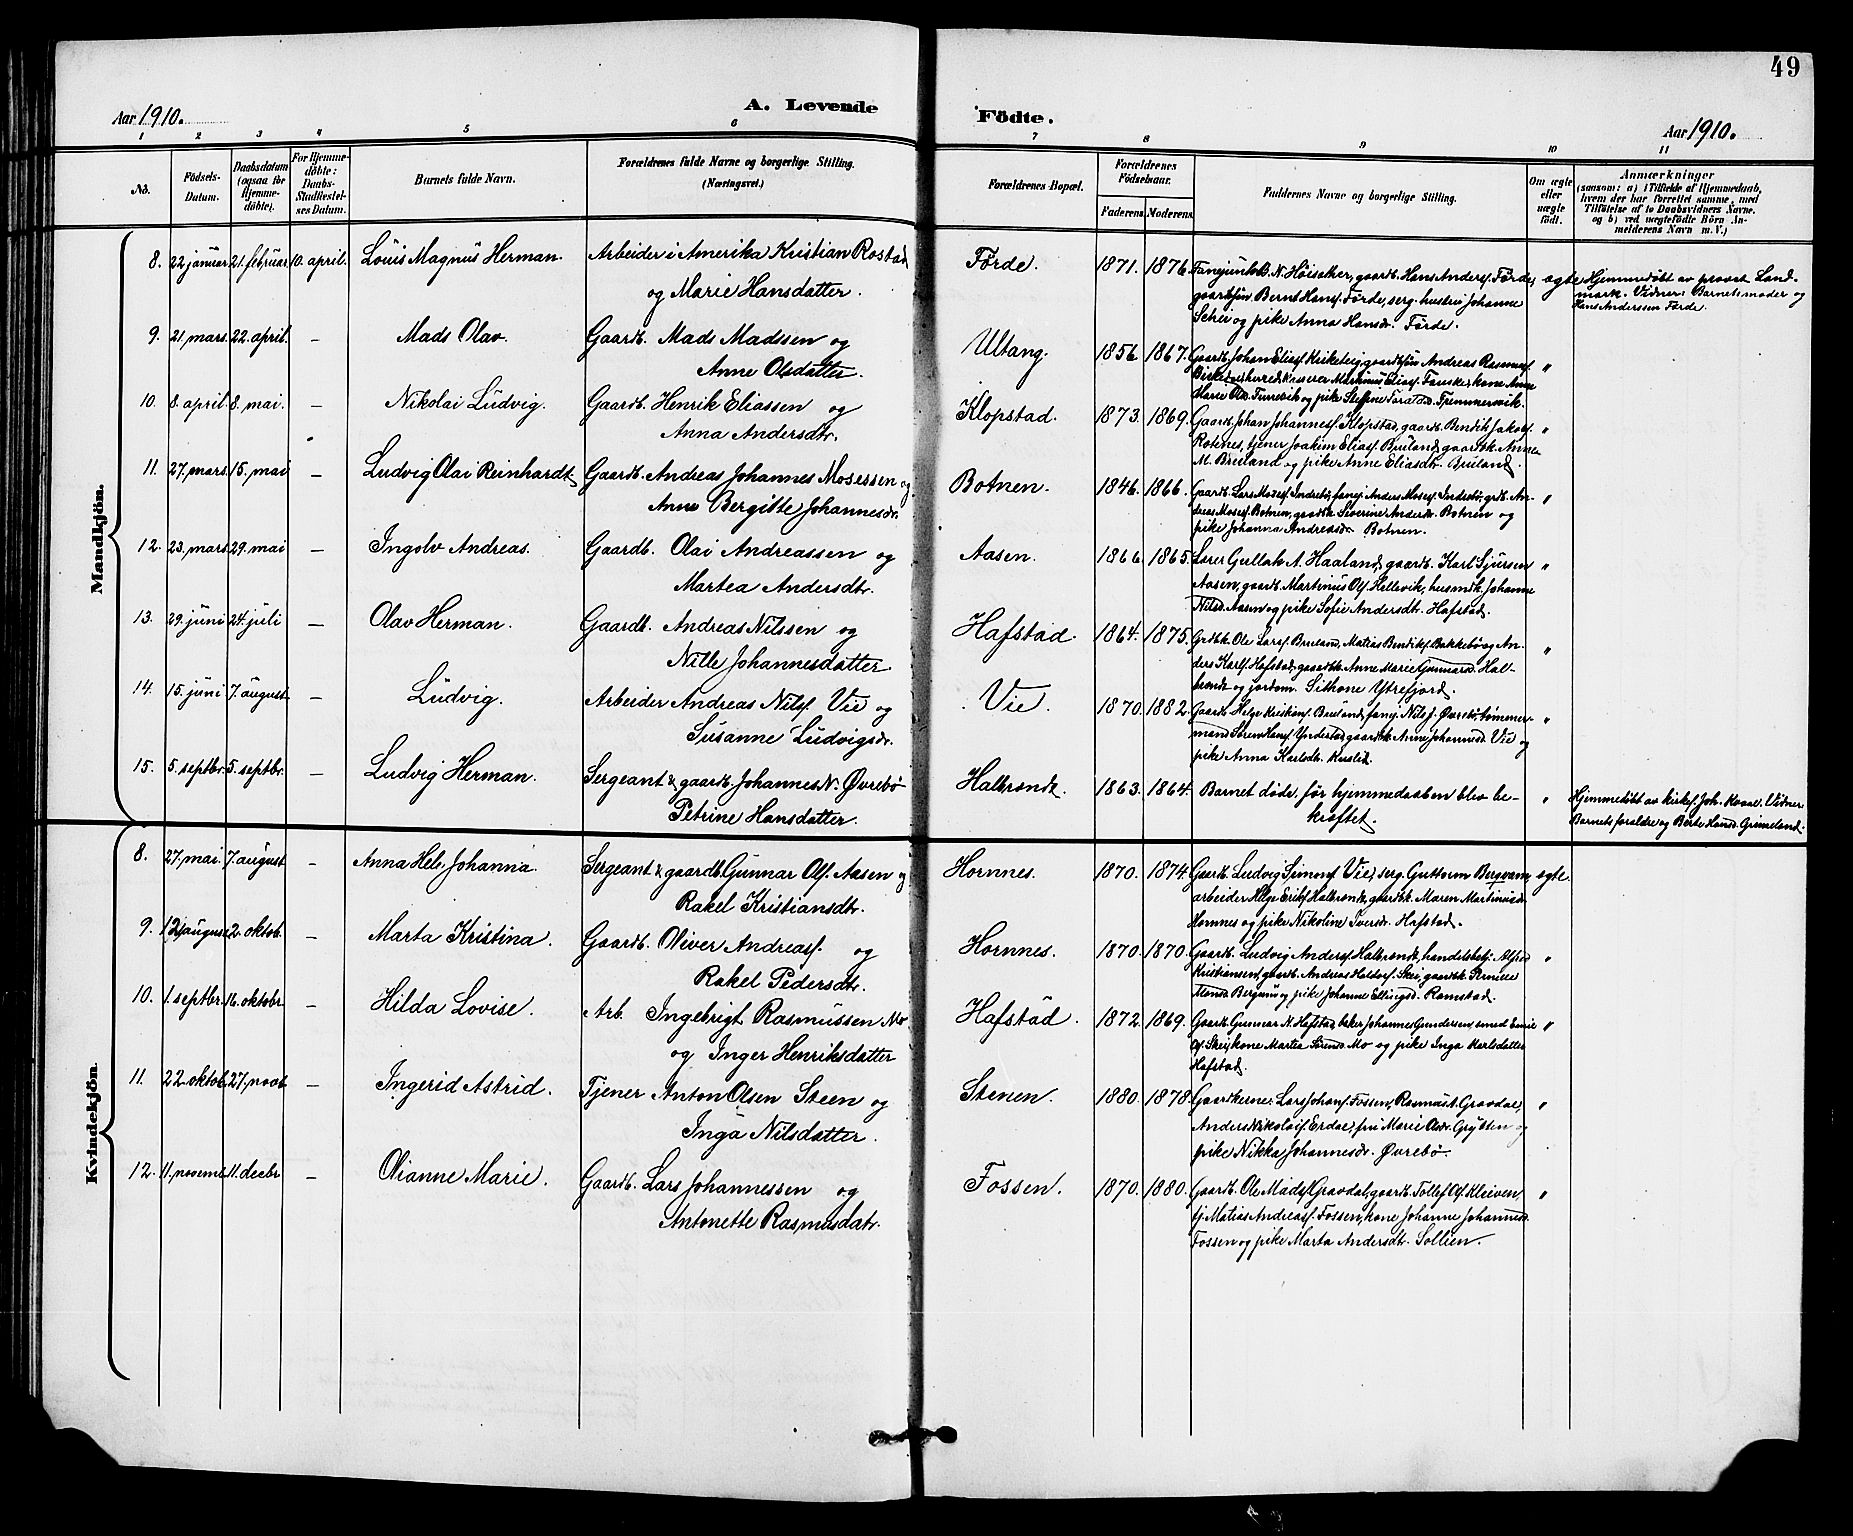 49
Aar 1910. A. Levende Födte. Aar 1910.
1 2 3 4 5 6 7 8 9 10 11
No. Födsels-Datum. Daabsdatum (ogsaa for Hjemme-döbte). For Hjemme-döbte: Daabs-Stadfæstel-ses Datum. Barnets fulde Navn. Forældrenes fulde Navne og borgerlige Stilling. (Næringsvei.) Forældrenes Bopæl. Forældrenes Födselsaar. Faderens. Moderens. Faddernes Navne og borgerlige Stilling. Om ægte eller uægte födt. Anmærkninger (saasom: a) i Tilfælde af Hjemmedaab, hvem der har forrettet samme, med Tilföielse af to Daabsvidners Navne, og b) ved uægtefödte Börn An-melderens Navn m. V.)
Mandkjön.
8. 22 januar. 21. februar. 10. april. Louis Magnus Herman. Arbeider i Amerika Kristian Rostad
og Marie Hansdatter.
Førde. 1871. 1876. Fanejunker B. N. Höisether, gaardb. Hans Anders. Førde,
gaardsøn Bernt Hans. Førde, serg. hustru Johanne
Schei og pike Anna Hansdr. Førde.
ægte Hjemmedøbt av provst Land-
mark. Vidner: Barnets moder og
Hans Anderssen Førde.
9. 21. mars. 22. april. – Mads Olav. Gaardb. Mads Madssen og
Anne Olsdatter.
Ultang. 1856. 1867. Gaardb. Johan Elias. Kirketeig, gaardsøn Andreas Rasmus.
"
10. 8. april. 8. mai. – Nikolai Ludvig. Gaardb. Henrik Eliassen og
Anna Andersdtr.
Klopstad. 1873. 1869. Gaardb. Johan Johannes. Klopstad, gaardb. Bendik Jakobs.
Rotnes, tjener Joakim Elias. Bruland, gaardbk. Anne
M. Bruland og pike Anne Eliasdtr. Bruland.
"
11. 27. mars. 15. mai – Ludvig Olai Reinhardt Gaardb. Andreas Johannes Mosessen og
Anne Bergitte Johannesdr.
Botnen. 1846. 1866. Gaardb. Lars Moses. Indrebø, fanej. Anders Moses. Indrebø, grdb. An-
dreas Moses. Botnen, gaardbk. Severine Andersdr. Botnen og
pike Johanna Andreasdr. Botnen.
"
12. 23. mars. 29. mai – Ingolv Andreas. Gaardb. Olai Andreassen og
Martea Andersdtr.
Aasen. 1866. 1865. Lærer Gullak A. Haaland, gaardb. Karl Sjursen
Aasen, gaardb. Martinus Ols. Hellevik, husmdk. Johanne
Nilsd. Aasen og pike Sofie Andersdtr. Hafstad.
"
13. 29. juni 24. juli – Olav Herman. Gaardb. Andreas Nilssen og
Nille Johannesdatter.
Hafstad. 1864. 1875. Grdbk. Ole Lars. Bruland, Matias Bendiks. Bakkebø og An-
ders Karls. Hafstad, gaardbk. Anne Marie Gunnarsd. Hal-
brendt og jordom. Sithone Ytrefjord.
"
14. 15. juni 7. august – Ludvig. Arbeider Andreas Nils. Vie og
Susanne Ludvigsdr.
Vie. 1870. 1882. Gaardb. Helge Kristians. Bruland, fanej. Nils J. Øvrebø, tømmer-
mand Søren Hans. Yndestad, gaardbk. Anne Johannesd. Vie og
pike Anna Karlsdtr.
"
15. 5. septbr. 5. septbr. – Ludvig Herman. Sergeant & gaardb. Johannes N. Øvrebø
Petrine Hansdatter.
Halbrendt. 1863. 1864. Barnet døde, før hjemmedaaben blev be-
kræftet.
" Hjemmedøbt av kirkes. Joh. Kvaal. Vidner:
Barnets forældre og Berte Hansd. Grimeland.
Kvindekjön.
8. 27. mai. 7. august – Anna Hel. Johanna. Sergeant & gaardb. Gunnar Ols. Aasen og
Rakel Kristiansdtr.
Hornnes. 1870. 1874. Gaardb. Ludvig Simons. Vie, serg. Guttorm Bergvam,
arbeider Helge Eriks. Halbrendt, gaardbk. Maren Martinusd.
Hornnes og pike Nikoline Iversdr. Hafstad.
ægte.
9. 12. august 2. oktob. – Marta Kristina. Gaardb. Oliver Andreas. og
Rakel Pedersdtr.
Hornnes. 1870. 1870. Gaardb. Ludvig Anders. Halbrendt, handelsbetj. Alfred
Kristiansen, gaardb. Andreas Haldors. Skei, gaardbk. Pernille
Monsd. Bergum og pike Johanne Ellingsd. Ramstad.
"
10. 1. septbr. 16. oktobr. – Hilda Lovise. Arb. Ingebrigt Rasmussen Mo
og Inger Henriksdatter
Hafstad. 1872. 1869. Gaardb. Gunnar N. Hafstad, baker Johannes Gundersen, smed Emil
Ols. Skei, kone Martha Sørensd. Mo og pike Inga Karlsdatter
Hafstad.
"
11. 22. oktob. 27. novb. – Ingerid Astrid. Tjener Anton Olsen Steen og
Inga Nilsdatter.
Stenen. 1880. 1878. Gaardkerne: Lars Johans. Fossen, Rasmus A. Gravdal,
Anders Nikolais. Erdal, fru Marie Olsdr. Grytten og
pike Nikka Johannesdr. Øvrebø.
"
12. 11. novemb. 11. decbr – Olianne Marie. Gaardb. Lars Johannessen og
Antonette Rasmusdatr.
Fossen. 1870. 1880. Gaardb. Ole Mads. Gravdal, gaardb. Tollef Ols. Kleiven,
tj. Matias Andreas. Fossen, kone Johanne Johannesd.
Fossen og pike Marta Andersdtr. Sollien.
"